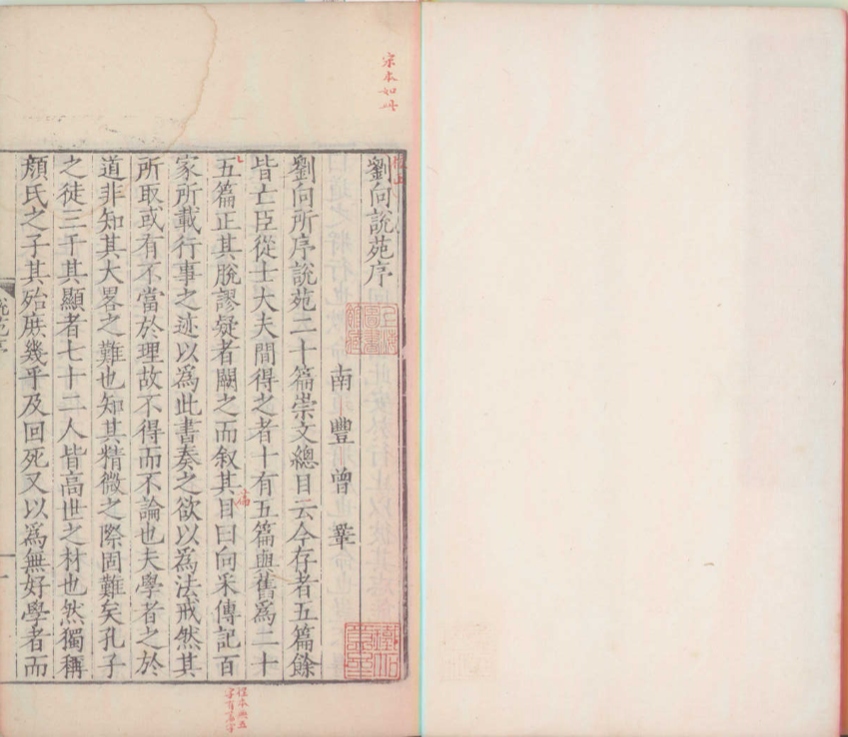 劉向說苑序
南豐曾鞏
劉向所序說苑二十篇崇文總目云今存者五篇餘
皆亡臣從士大夫間得之者十有五篇與舊爲二十
五篇正其脫謬疑者闕之而叙其目曰向采傳記百
家所載行事之迹以爲此書奏之欲以爲法戒然其
所取或有不當於理故不得而不論也夫學者之於
道非知其大畧之難也知其精微之際固難矣孔子
之徒三千其顯者七十二人皆高世之材也然獨稱
顏氏之子其殆庶幾乎及回死又以爲無好學者而
宋本如此
篇